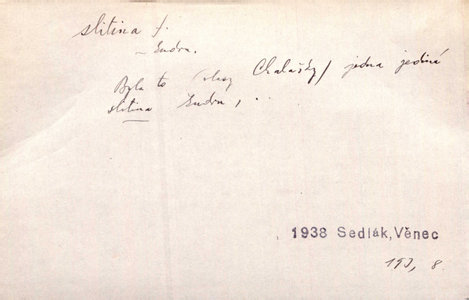 slitina f.
– Sudra.
Byla to Chalašky / jedna jediná
slitina Sudra, . .
1938 Sedlák, Věnec
193, 8.